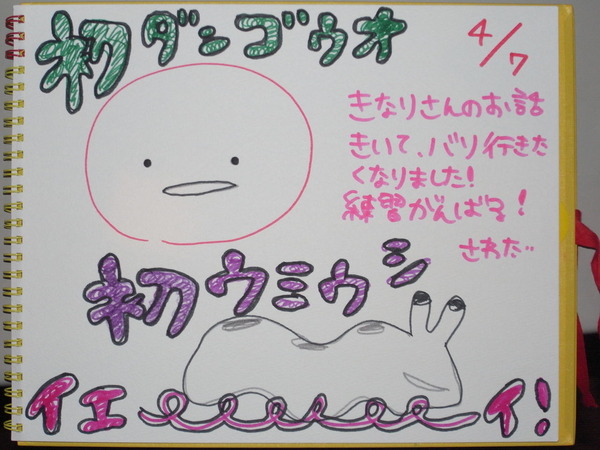 初ダンゴウオ
4/7
きなりさんのお話
きいて、バリ行きた
くなりました!
練習がんばる!
さわだ
初ウミウシ
イエーイ!